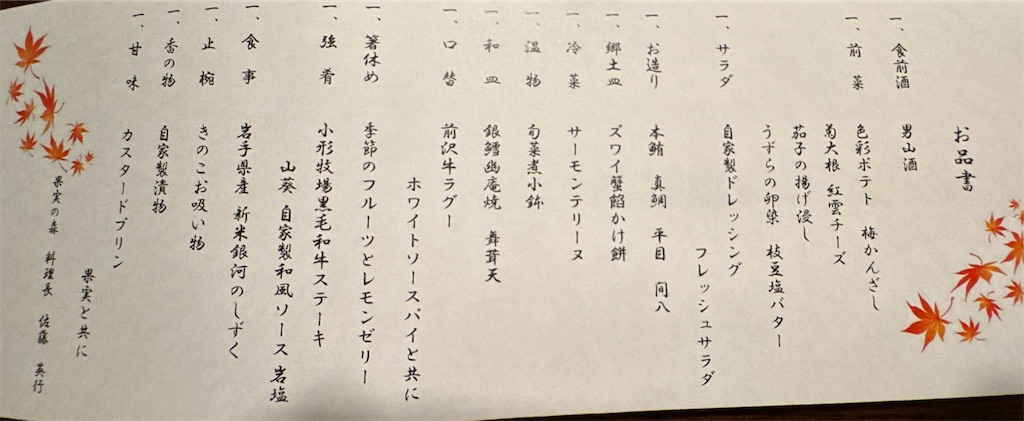 お品書
一、食前酒 男山酒
一、前菜 色彩ポテト 梅かんざし
菊大根 紅雲チーズ
茄子の揚げ浸し
うずらの卵染 枝豆塩バター
一、サラダ 自家製ドレッシング
フレッシュサラダ
一、お造り 本鮪 真鯛 平目 間八
一、郷土皿 ズワイ蟹餡かけ餅
一、冷菜 サーモンテリーヌ
一、温物 旬菜煮小鉢
一、和皿 銀鱈幽庵焼 舞茸天
一、口替 前沢牛ラグー
ホワイトソースパイと共に
一、箸休め 季節のフルーツとレモンゼリー
一、強肴 小形牧場黒毛和牛ステーキ
山葵 自家製和風ソース 岩塩
一、食事 岩手県産 新米銀河のしずく
一、止椀 きのこお吸い物
一、香の物 自家製漬物
一、甘味 カスタードプリン
果実と共に
果実の森 料理長 佐藤 英行